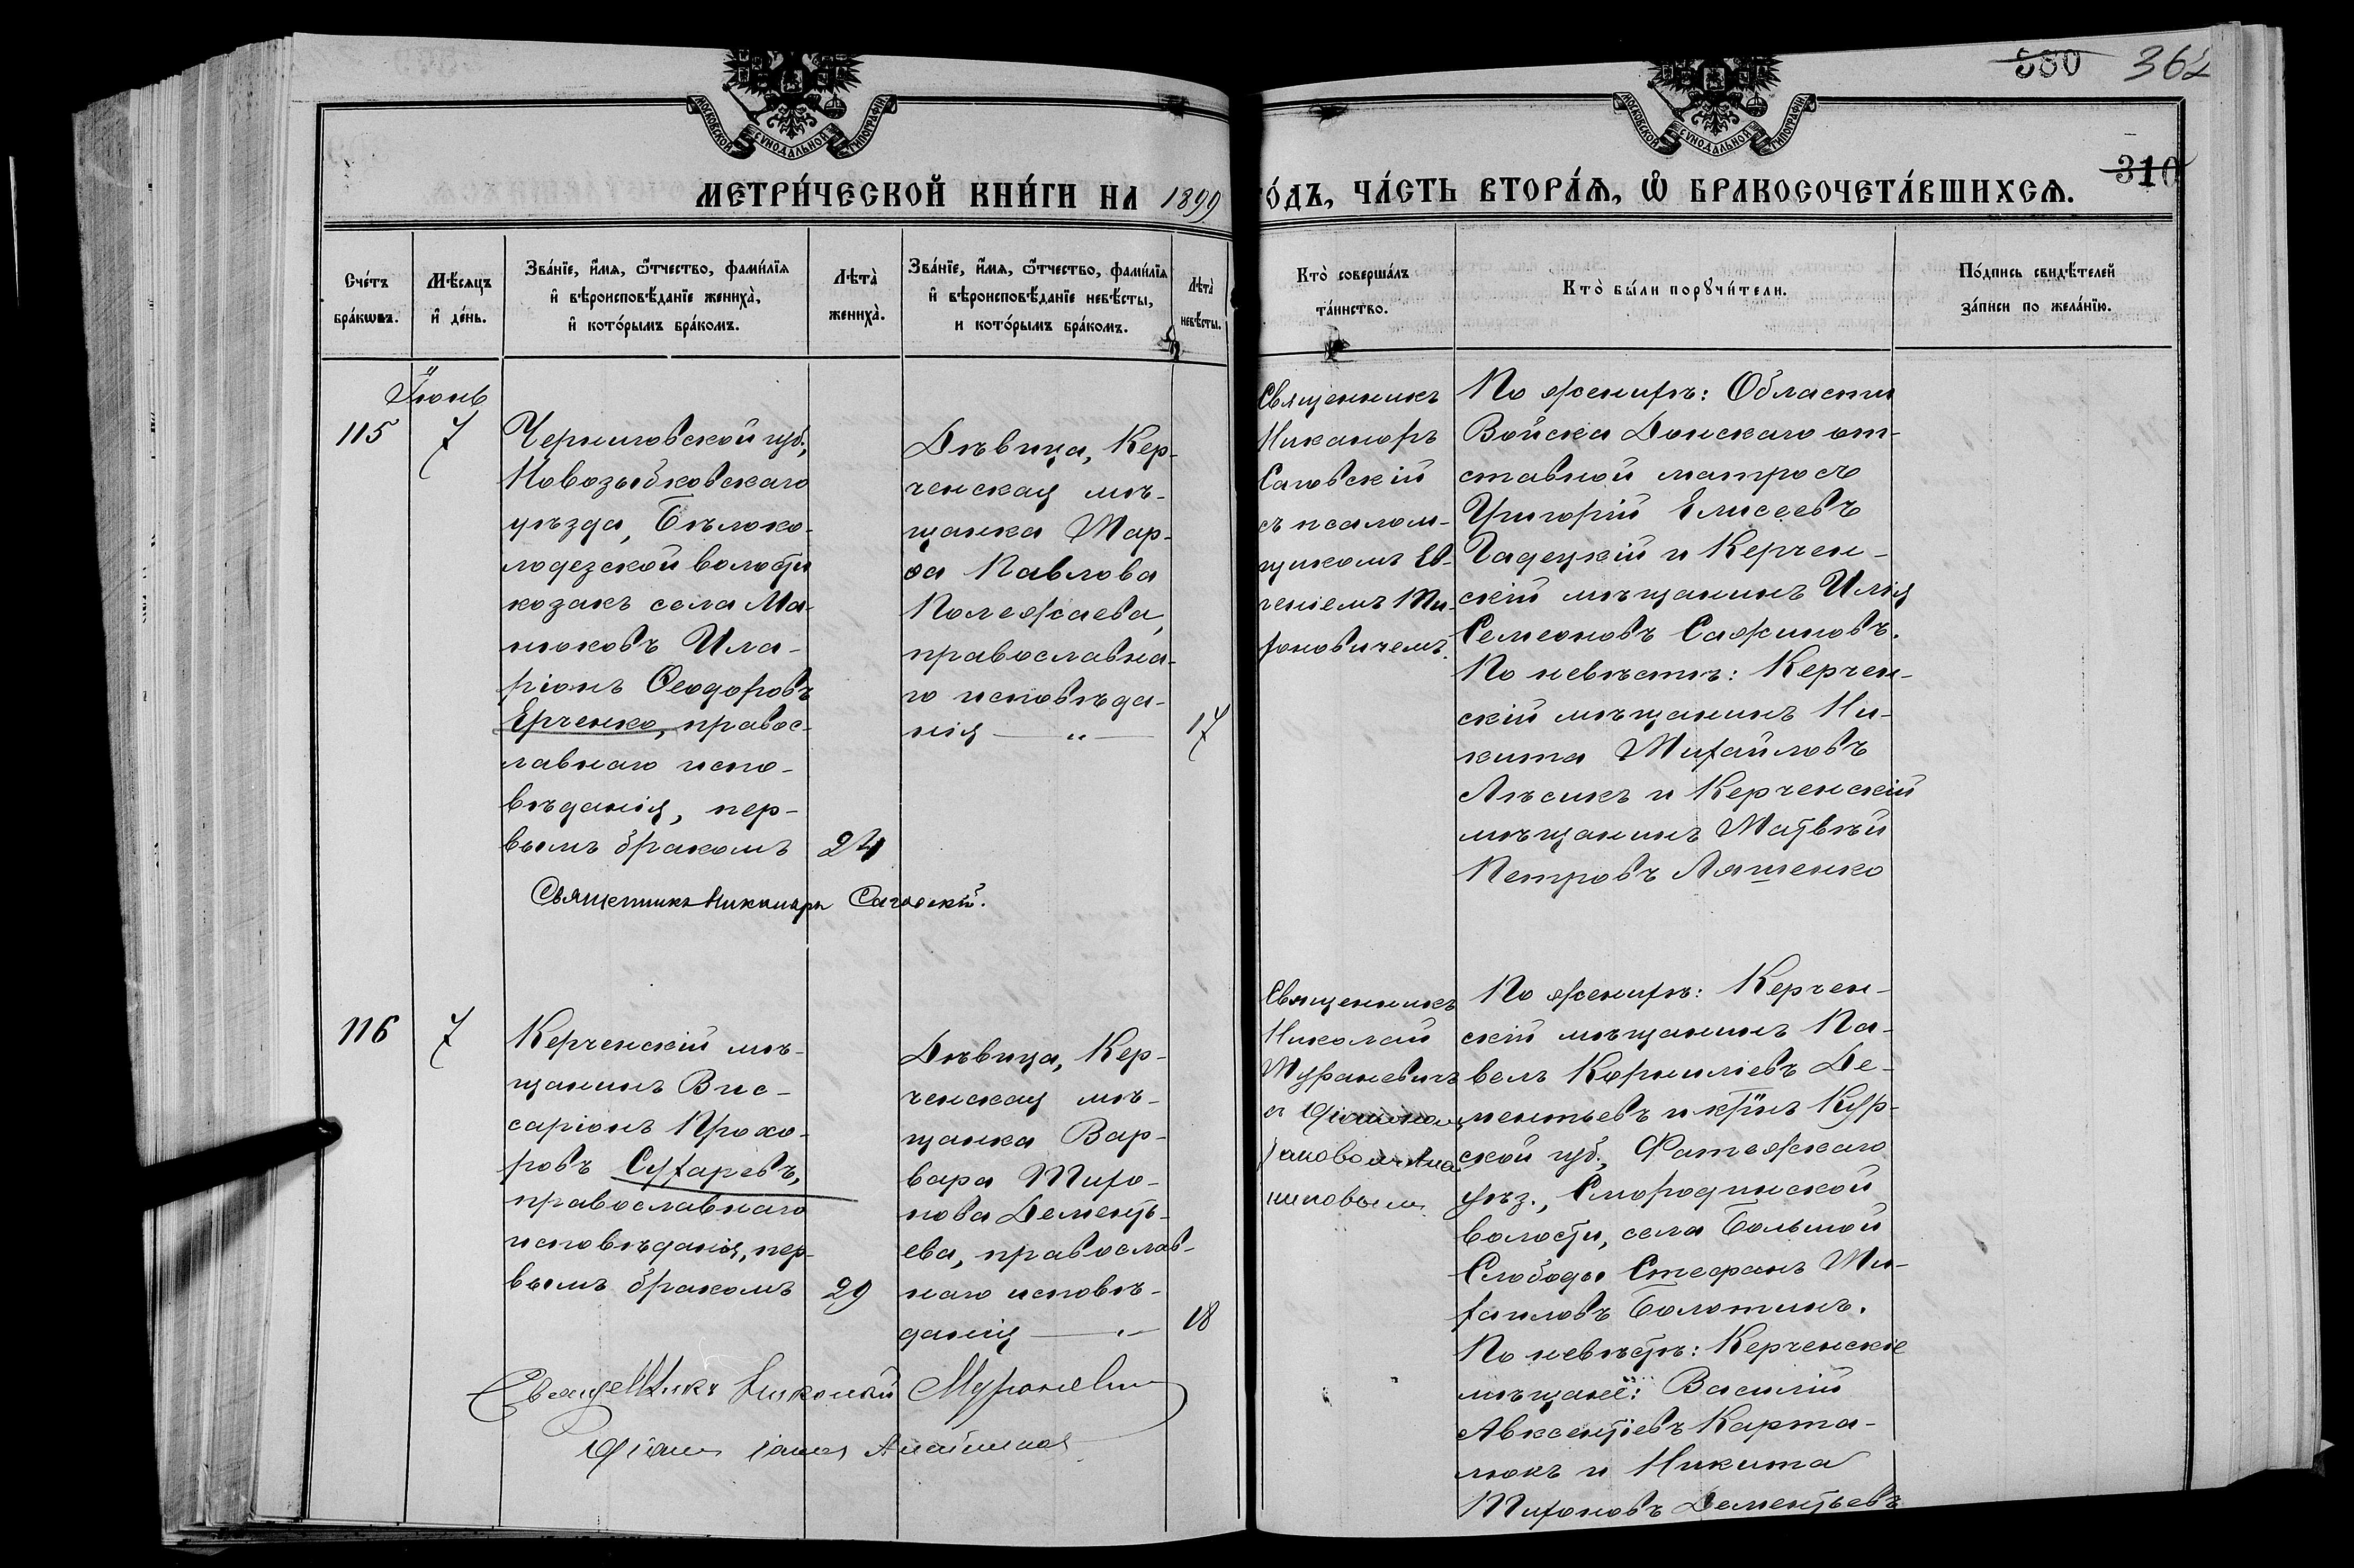 380 362
МОСКОВСКОЙ СУНОДАЛЬНОЙ ТИПОГРАФІИ
МОСКОВСКОЙ СУНОДАЛЬНОЙ ТИПОГРАФІИ
310
МЕТРИ́ЧЕСКОЙ КНИ́ГИ НА 1899 ГО́ДЪ, ЧА́СТЬ ВТОРА́Ѧ, Ѽ БРАКОСОЧЕТА́ВШИХСѦ.
Сче́тъ
бра́кѡвъ.
Мѣ́сяцъ
и҆ де́нь.
Зва́нїе, и҆́мѧ, ѻ҆́тчество, фами́лїѧ
и҆ вѣроисповѣ́данїе жениха̀,
и҆ кото́рымъ бра́комъ.
Лѣта̀
жениха̀.
Зва́нїе, и҆́мѧ, ѻ҆́тчество, фами́лїѧ
и҆ вѣроисповѣ́данїе невѣ́сты,
и кото́рымъ бра́комъ.
Лѣта̀
невѣ́сты.
Кто̀ соверша́лъ
та́инство.
Кто̀ бы́ли порꙋчи́тели.
По́дпись свидѣ́телей
за́писи по жела́нїю.
Іюнь
115
7
Черниговской губ.,
Новозыбковскаго
уѣзда, Бѣлоко-
лодезской волости
козакъ села Ма-
нюковъ Ила-
ріонъ Ѳеодоровъ
Ерченко, правос-
лавнаго испо-
вѣданія, пер-
вымъ бракомъ
24
Дѣвица, Кер-
ченская мѣ-
щанка Мар-
ѳа Павлова
Полежаева,
православна-
го исповѣда-
нія — „ —
17
Священникъ
Никаноръ
Саговскій
съ псалом-
щикомъ Ев-
геніемъ Ми-
роновичемъ.
По женихѣ: Области
Войска Донскаго от-
ставной матросъ
Григорій Елисеевъ
Гадецкій и Керчен-
скій мѣщанинъ Илія
Семеоновъ Сажиновъ.
По невѣстѣ: Керчен-
скій мѣщанинъ Ни-
кита Михайловъ
Лѣсикъ и Керченскій
мѣщанинъ Матвѣй
Петровъ Ляшенко
Священникъ Никаноръ Саговскій.
116
7
Керченскій мѣ-
щанинъ Вис-
саріонъ Прохо-
ровъ Сухаревъ,
православнаго
исповѣданія, пер-
вымъ бракомъ
29
Дѣвица, Кер-
ченская мѣ-
щанка Вар-
вара Тихо-
нова Дементь-
ева, православ-
наго исповѣ-
данія — „ —
18
Священникъ
Николай
Мураневичъ
По женихѣ: Керчен-
скій мѣщанинъ Па-
велъ Корниліевъ Де-
ментьевъ и кр̃нъ Кур-
ской губ., Фатежскаго
уѣз., Смородинской
волости, села Большой
Слободы Стефанъ Ми-
хаиловъ Болотинъ.
По невѣстѣ: Керченскіе
мѣщане: Василій
Авксентіевъ Карта-
люкъ и Никита
Тихоновъ Дементьевъ
Священникъ Николай Мураневич